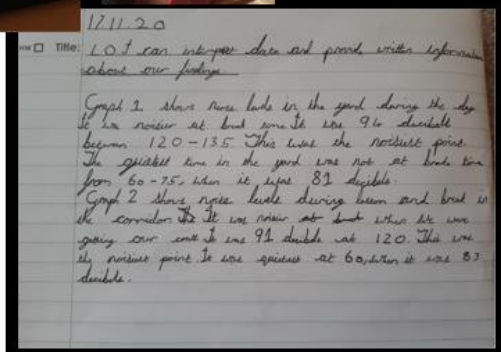 17.11.20
HW Title: LO I can interpret data and provide written information
about our findings.
Graph 1 shows noise levels in the yard during the day
It was noisier at break time. It was 96 decibels
between 120-135. This was the noisiest point.
The quietest time in the yard was not at break time
from 60-75, when it was 81 decibels.
Graph 2 shows noise levels during lesson and break in
the corridor. The It was noisier at when we were
getting our It was 91 decibels at 120. This was
the noisiest point. It was quietest at 60, when it was 83
decibels.